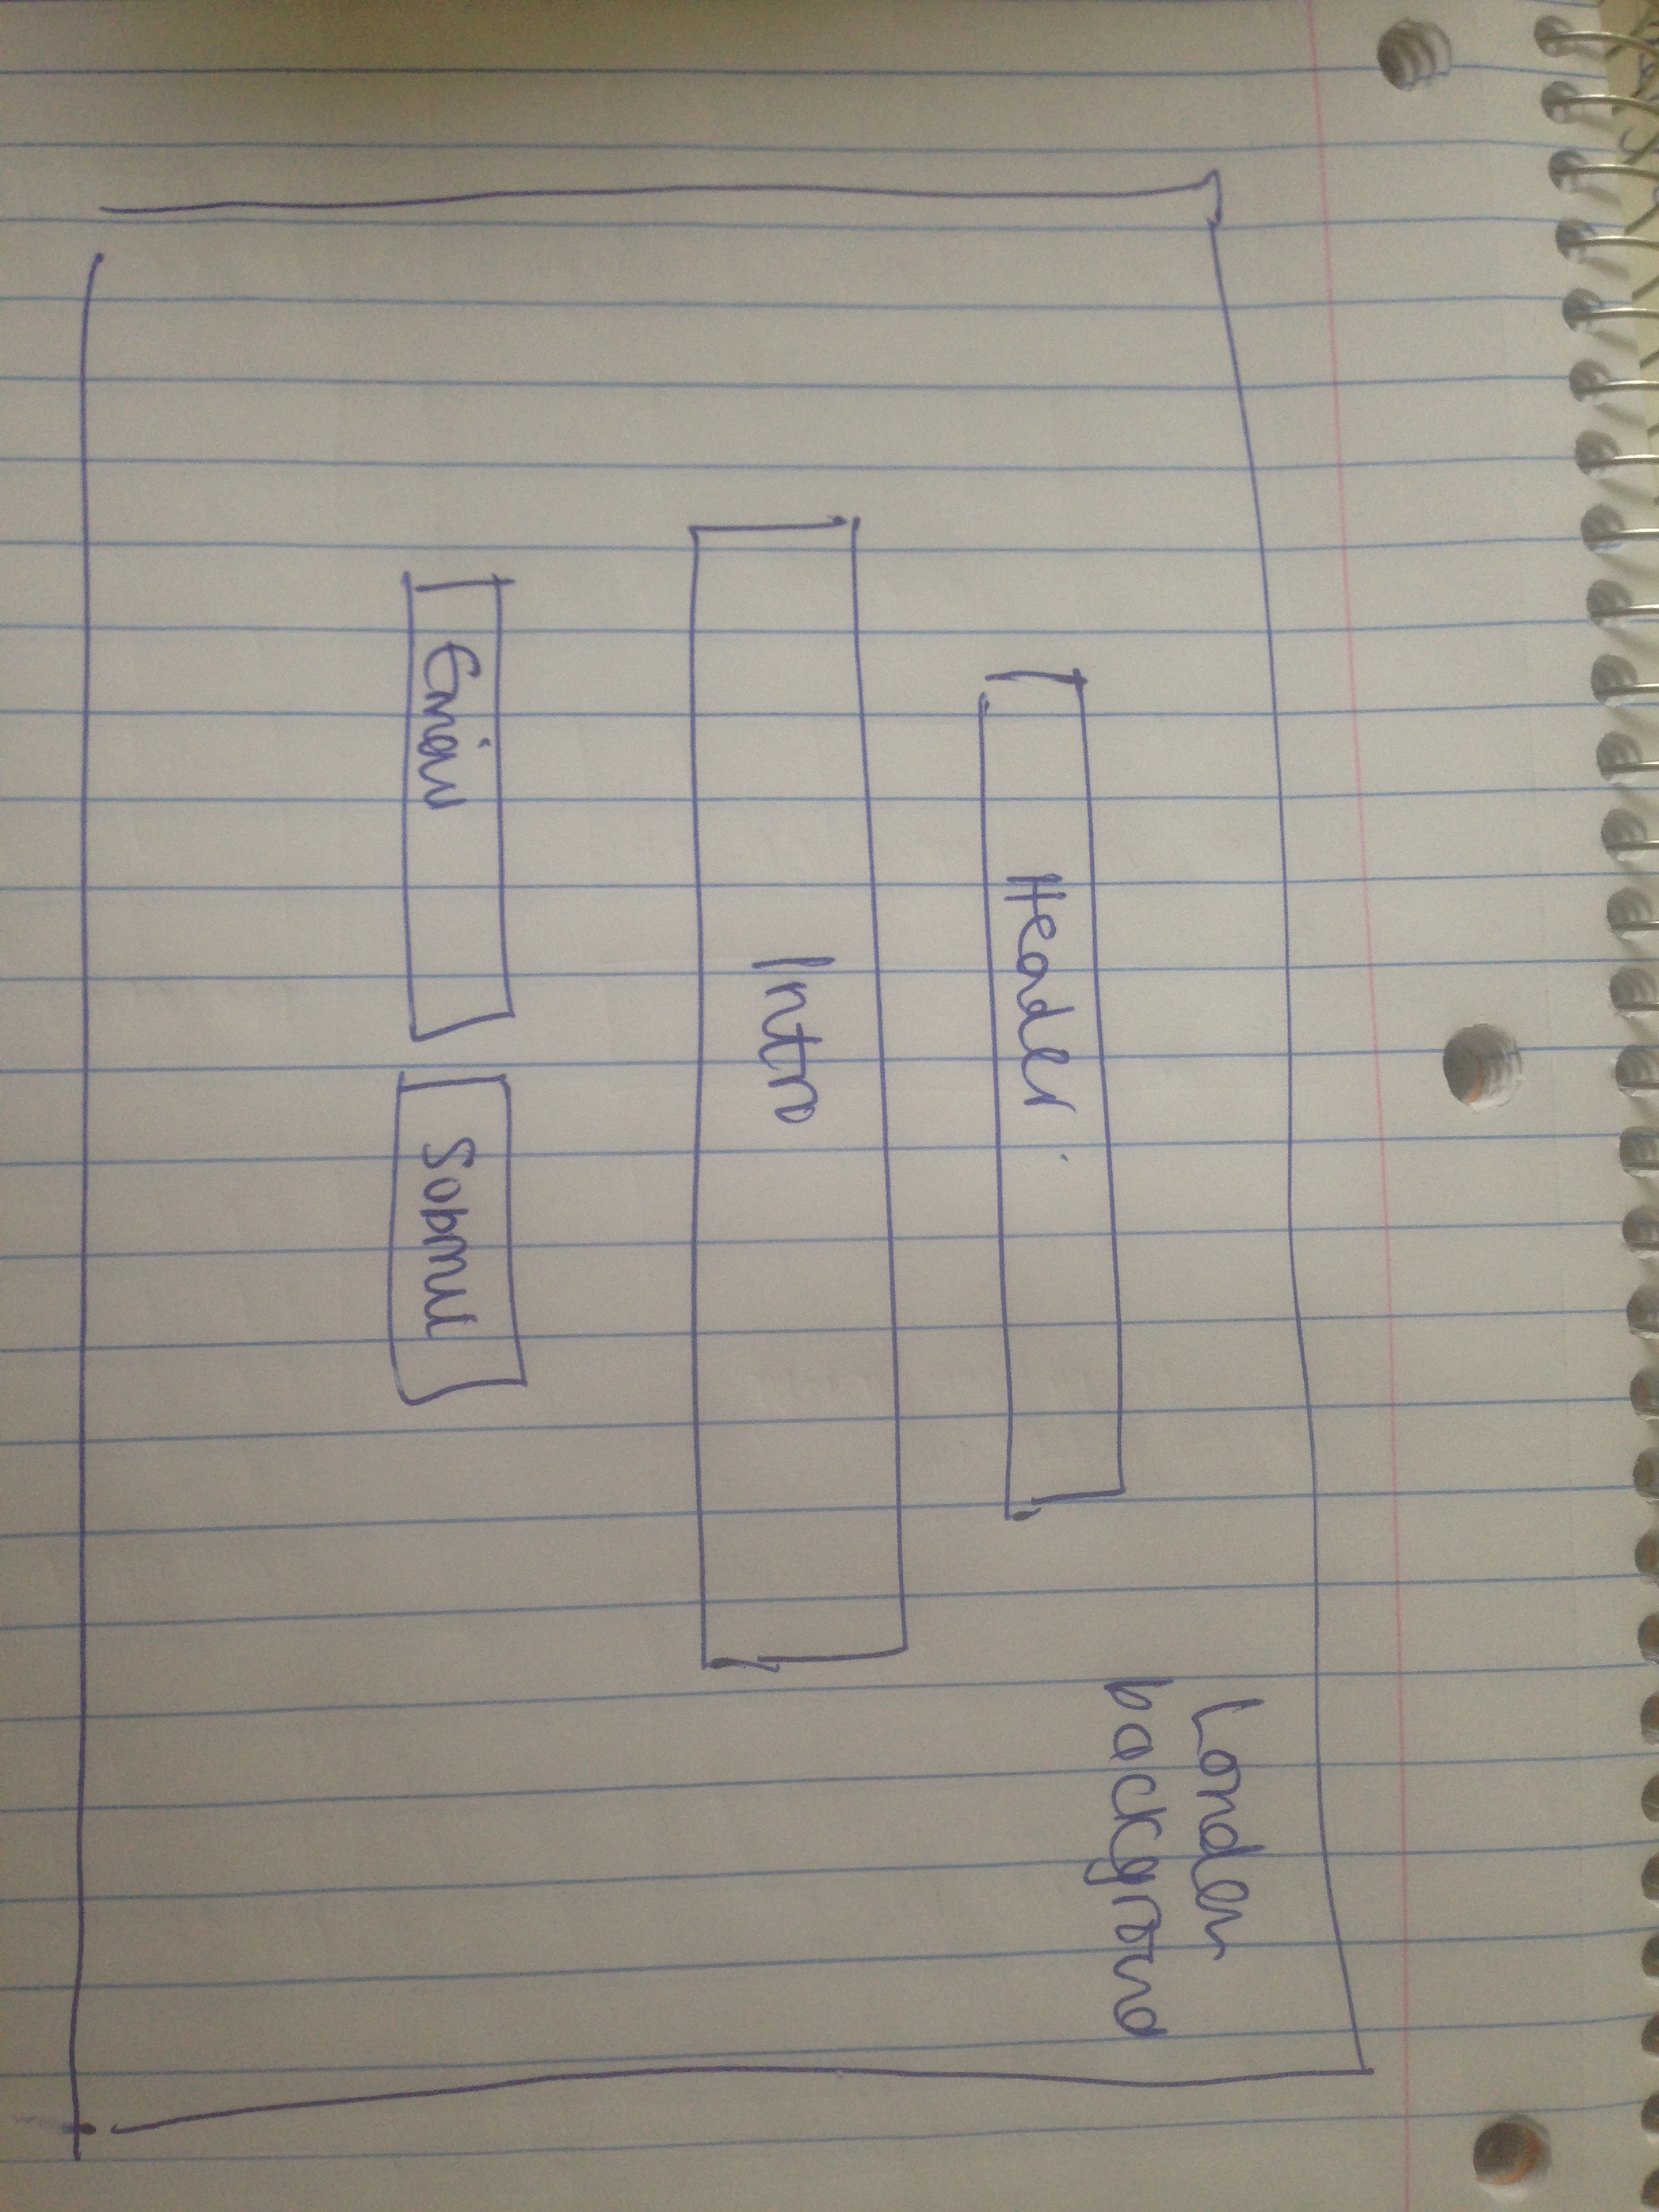 London
background
Header
Intro
Email
Submit